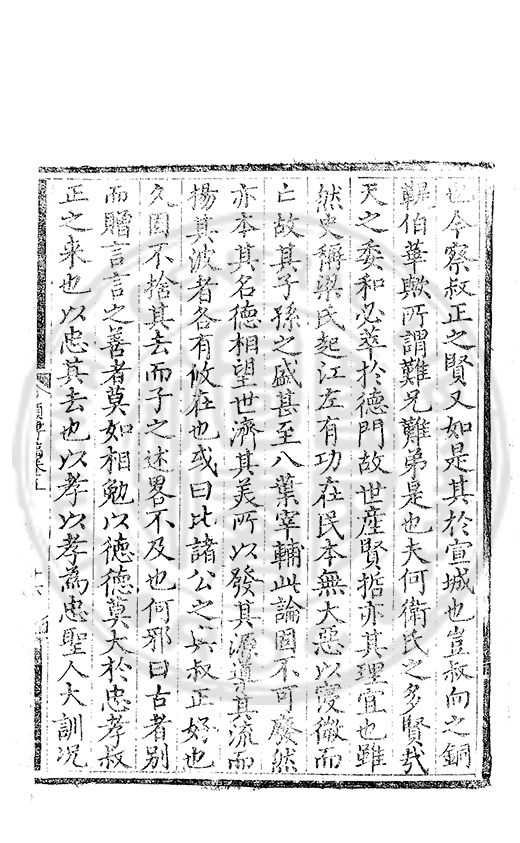 也今察叔正之賢又如是其於宣城也豈叔向之銅
鞮伯華歟所謂難兄難弟是也夫何衛氏之多賢㢤
天之委和必萃於德門故世産賢㧞亦其理宜也雖
然史稱梁氏起江左有功在民本無大惡以寖微而
亡故其子孫之盛甚至八葉宰輔此論固不可廢然
亦本其名德相望世濟其美所以發其源導其流而
揚其波者各有攸在也或曰比諸公之與叔正好也
久固不捨其去而子之述畧不及也何邪曰古者别
而贈言言之善者莫如相勉以德德莫大於忠孝叔
正之来也以忠其去也以孝以孝為忠聖人大訓况